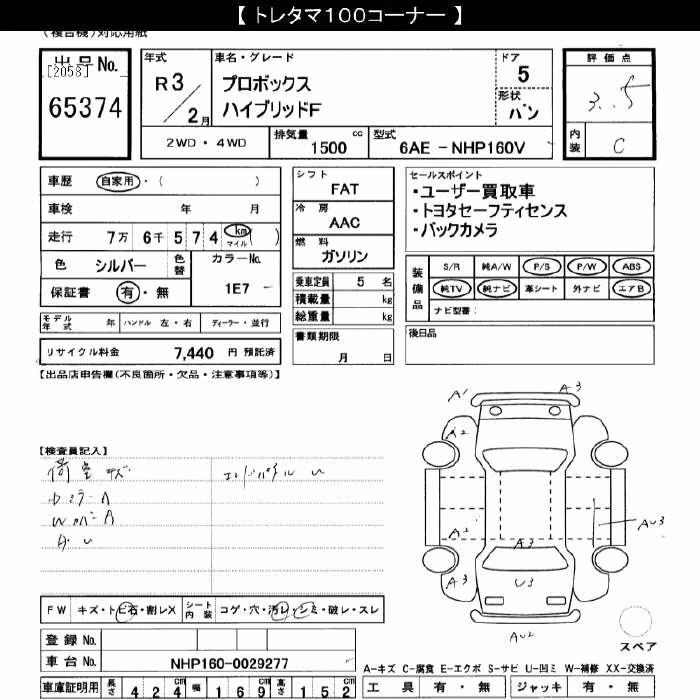 【 トレタマ100コーナー 】
(複合機)対応用紙
出品No. [2058]
65374
年式 R3/2月
車名・グレード
プロボックス
ハイブリッドF
ドア 5
形状 バン
評価点
3.5
内装 C
2WD・4WD
排気量 1500 cc
型式 6AE - NHP160V
車歴 自家用・( )
車検 年 月
走行 7万 6千 5 7 4 km マイル ( )
色 シルバー 色替
カラーNo. 1E7
保証書 有・無
シフト FAT
冷房 AAC
燃料 ガソリン
乗車定員 5 名
積載量 kg
総重量 kg
書類期限
月 日
セールスポイント
・ユーザー買取車
・トヨタセーフティセンス
・バックカメラ
装備品
S/R 純A/W P/S P/W ABS
純TV 純ナビ 革シート 外ナビ エアB
ナビ型番:
後日品
モデル年式 年 ハンドル 左・右 ディーラー・並行
リサイクル料金 7,440 円 預託済
【出品店申告欄(不良箇所・欠品・注意事項等)】
【検査員記入】
荷室キズ
A1
A3
A2
AU3
A2
A3
A3
U3
AU2
スペア
FW キズ・トビ石・割レX シート内装 コゲ・穴・汚レ・シミ・破レ・スレ
登録No.
車台No. NHP160-0029277
車庫証明用 長さ 4 2 4 cm 幅 1 6 9 cm 高さ 1 5 2 cm
A-キズ C-腐食 E-エクボ S-サビ U-凹ミ W-補修 XX-交換済
工具 有・無 ジャッキ 有・無